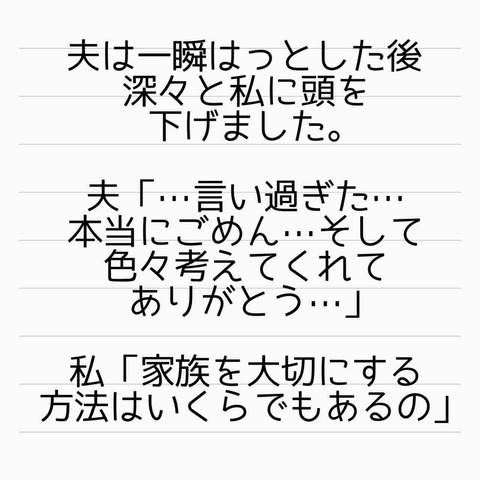 夫は一瞬はっとした後
深々と私に頭を
下げました。
夫「…言い過ぎた…
本当にごめん…そして
色々考えてくれて
ありがとう…」
私「家族を大切にする
方法はいくらでもあるの」